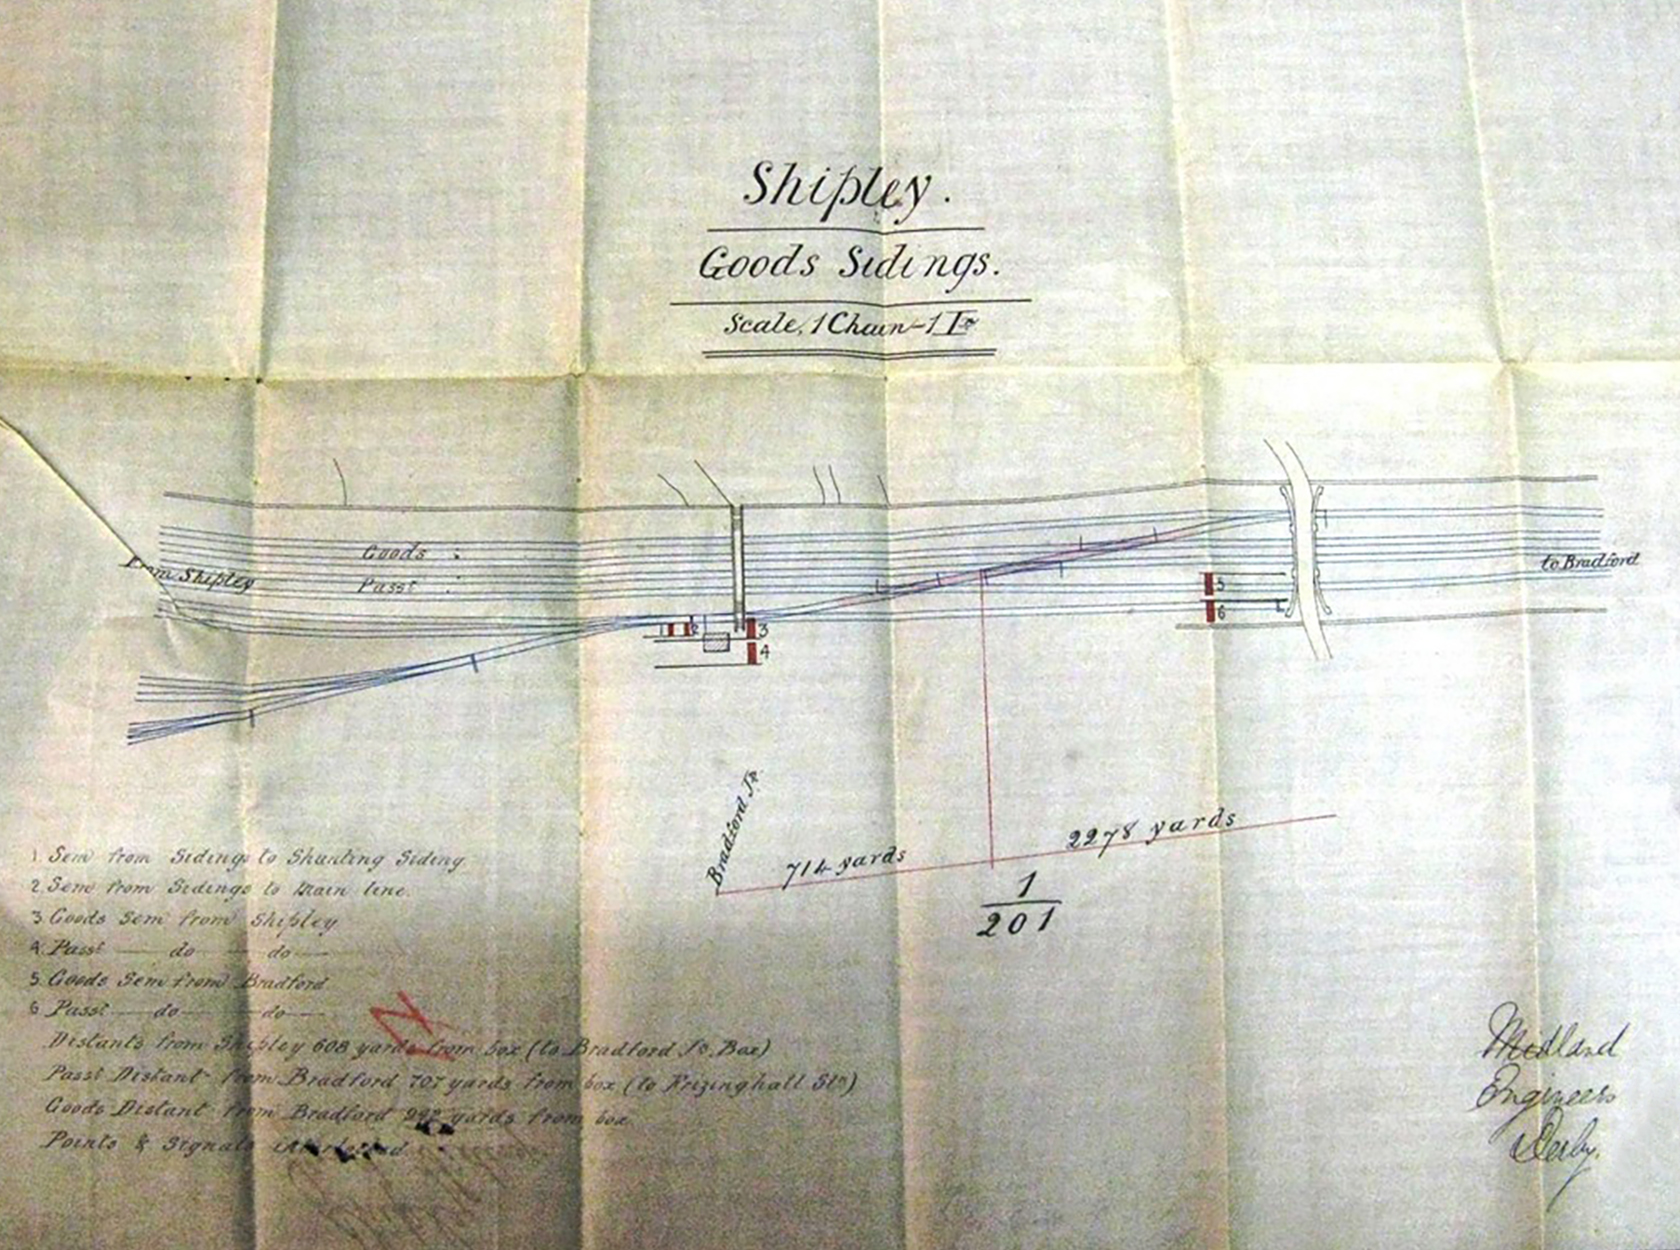 Shipley.
Goods Sidings.
Scale, 1 Chain = 1 In
Goods :
Passr :
From Shipley
to Bradford
1 2
3
4
5
6
Bradford Jn
714 yards
2278 yards
1
201
1 Sem from Sidings to Shunting Siding
2 Sem from Sidings to Main line.
3 Goods Sem from Shipley
4. Passr do do
5 Goods Sem from Bradford
6 Passr do do
Distants from Shipley 608 yards from box (to Bradford Jn. Box)
Passr Distant from Bradford 707 yards from box (to Frizinghall Stn)
Goods Distant from Bradford yards from box
Points & Signals
Midland
Engineers
Derby.